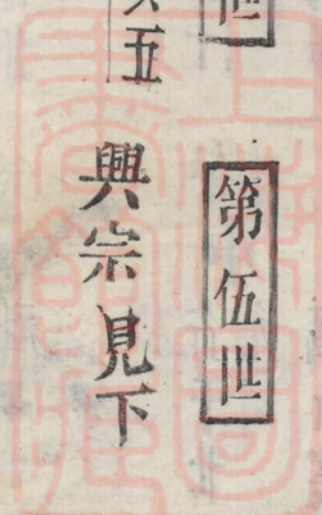 世
第伍世
五
興宗見下